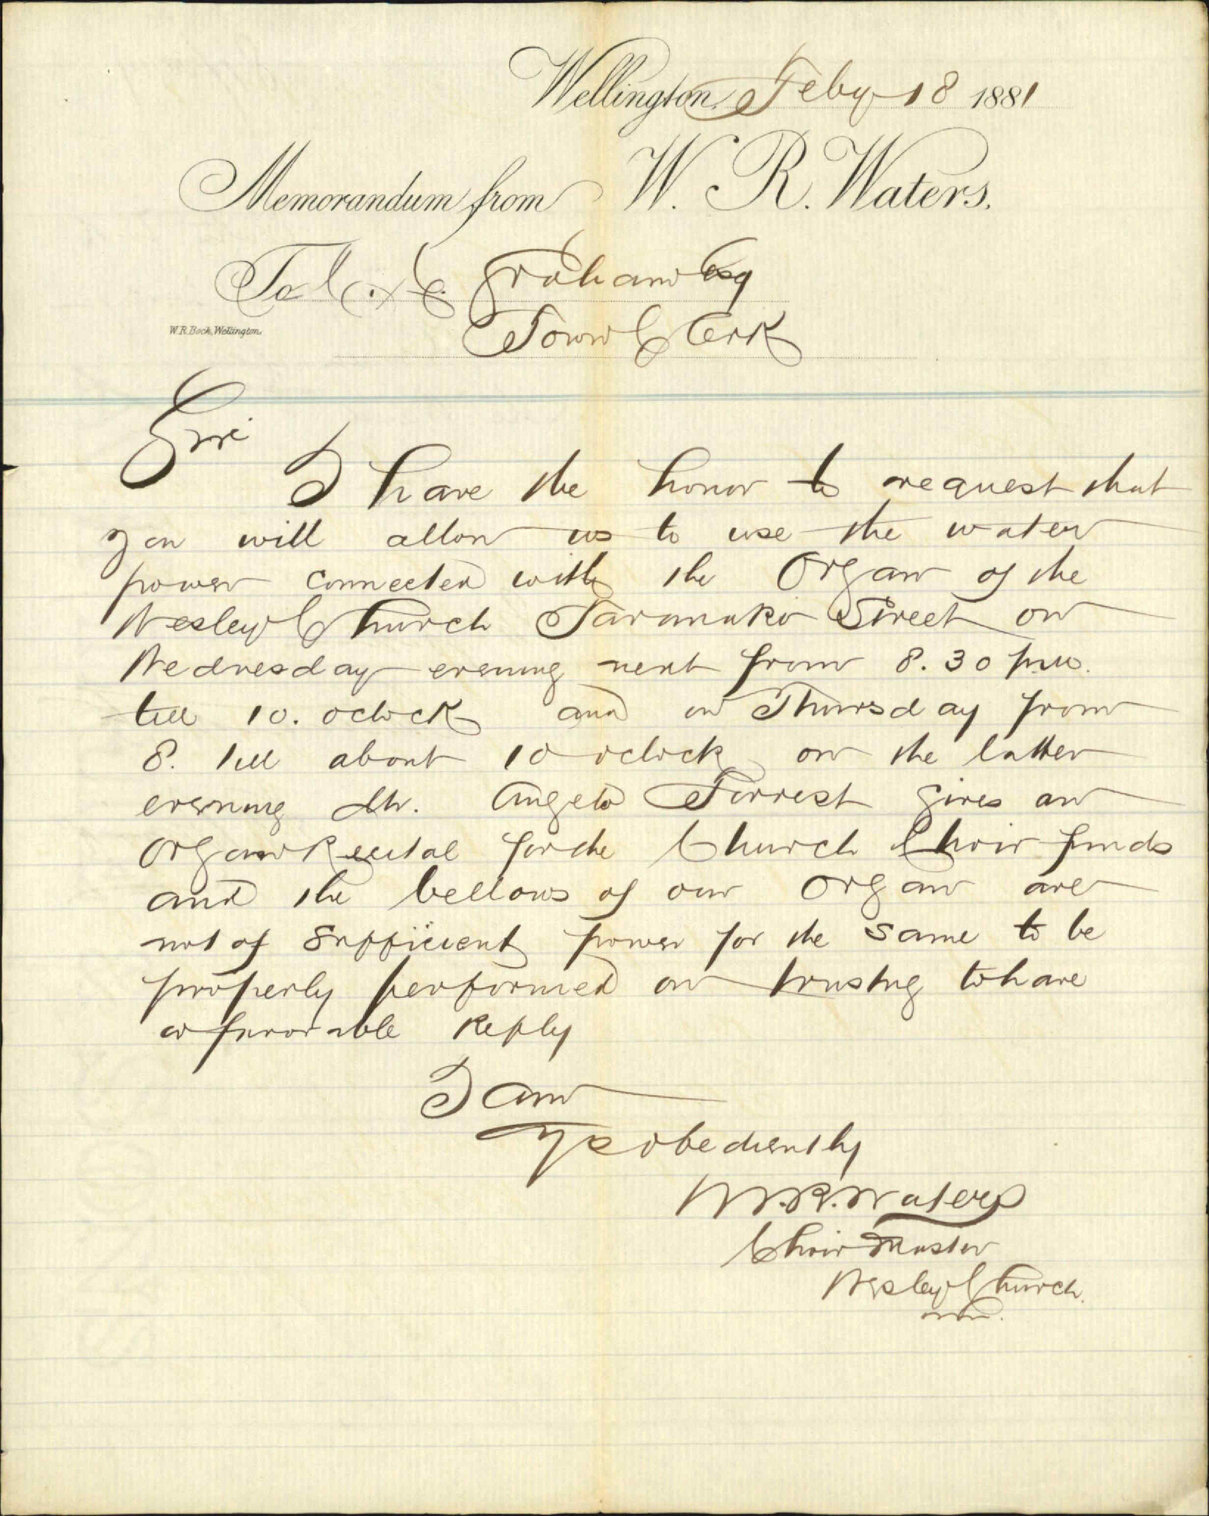 Wellington, Feby 18 1881
Memorandum from W. R. Waters.
To C. C. Graham Esq
W. R. Bock, Wellington.
Town Clerk
Sir
I have the honor to request that
you will allow us to use the water
power connected with the Organ of the
Wesley Church Taranaki Street on
Wednesday evening next from 8.30 p.m.
till 10. oclock and on Thursday from
8. till about 10 oclock on the latter
evening Mr. Angelo Forrest gives an
Organ Recital for the Church Choir funds
and the bellows of our Organ are
not of sufficient power for the same to be
properly performed on trustng to have
a favorable Reply
I am
Yrs obediently
W. R. Waters
Choir Master
Wesley Church.